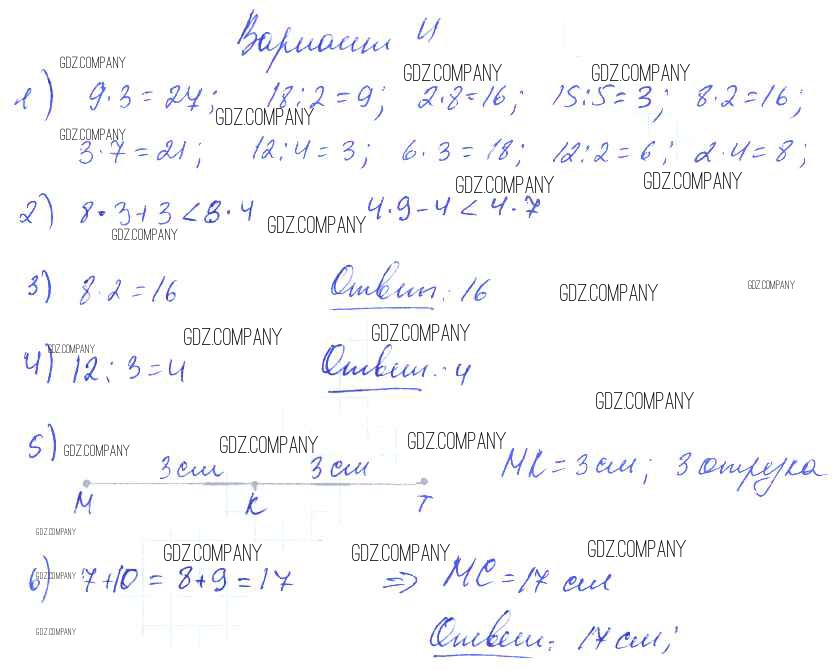 Вариант 4
GDZ.COMPANY GDZ.COMPANY GDZ.COMPANY
1) 9·3=27; 18:2=9; 2·8=16; 15:5=3; 8·2=16;
GDZ.COMPANY GDZ.COMPANY
3·7=21; 12:4=3; 6·3=18; 12:2=6; 2·4=8;
GDZ.COMPANY GDZ.COMPANY
2) 8·3+3<8·4 4·9-4<4·7
GDZ.COMPANY GDZ.COMPANY
3) 8·2=16 Ответ: 16
GDZ.COMPANY GDZ.COMPANY
GDZ.COMPANY GDZ.COMPANY GDZ.COMPANY
4) 12:3=4 Ответ: 4
GDZ.COMPANY
5) GDZ.COMPANY GDZ.COMPANY GDZ.COMPANY
3см 3см МК=3см; 3 отрезка
М К Т
GDZ.COMPANY
GDZ.COMPANY GDZ.COMPANY GDZ.COMPANY
6) GDZ.COMPANY 7+10=8+9=17 => МС=17 см
GDZ.COMPANY
Ответ: 17см;